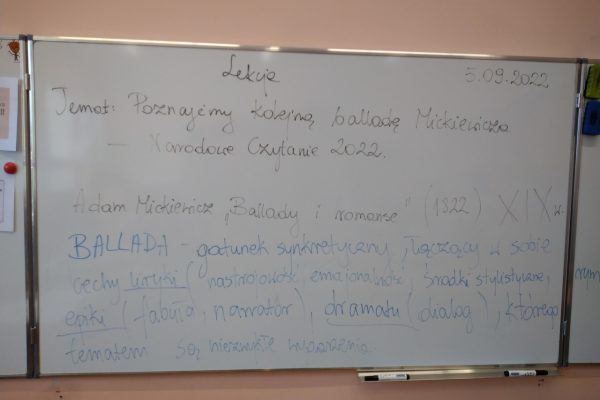 Lekcja 5.09.2022
Temat: Poznajemy kolejną balladę Mickiewicza
– Narodowe Czytanie 2022.
Adam Mickiewicz „Ballady i romanse" (1822) XIX w.
BALLADA - gatunek synkretyczny, łączący w sobie
cechy liryki (nastrojowość, emocjonalność, środki stylistyczne,
epiki (fabuła, narrator), dramatu (dialog), którego
tematem są niezwykłe wydarzenia.